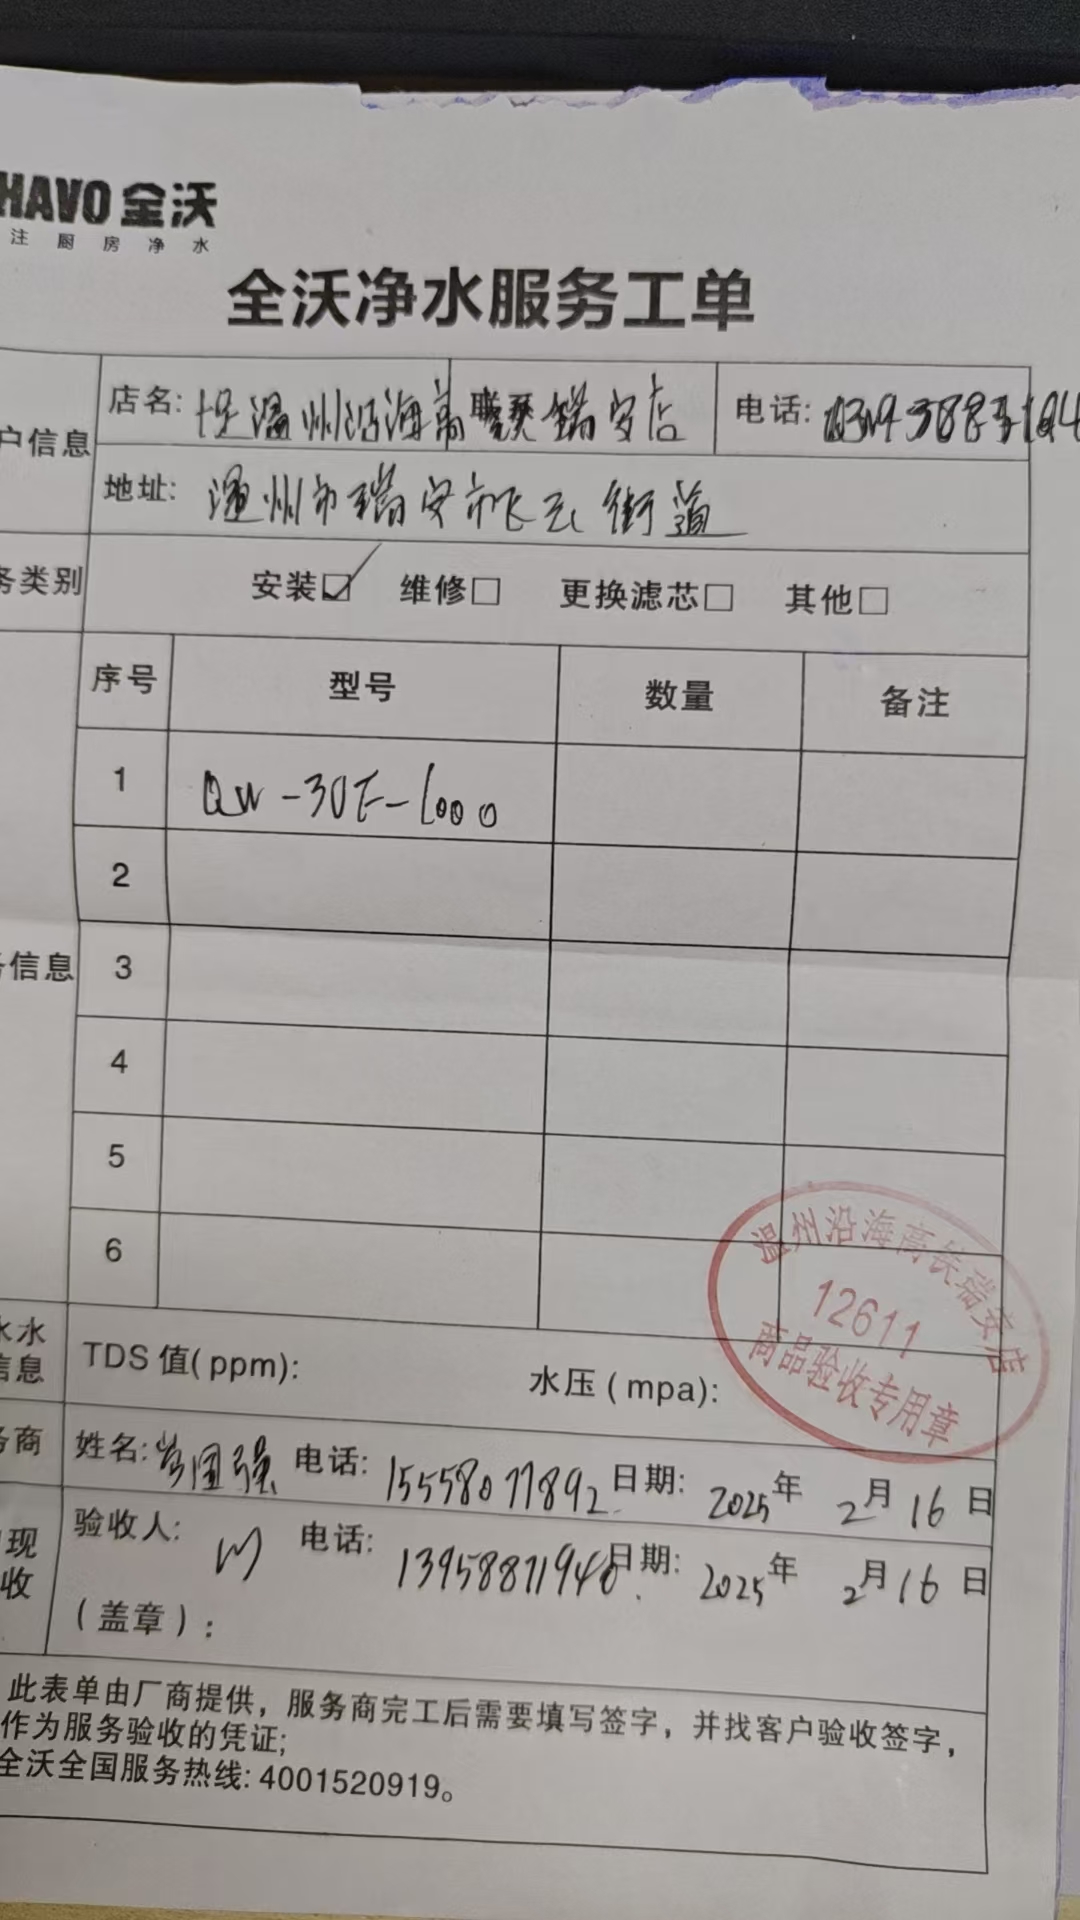 HAVO 全沃
注厨房净水
全沃净水服务工单
户信息
店名: 温州沿海高 瑞安店 电话:
地址: 温州市瑞安市飞云街道
务类别 安装☑ 维修□ 更换滤芯□ 其他□
序号 型号 数量 备注
1 QW-30F-1000
2
信息 3
4
5
6
温州沿海高铁瑞安店
12611
商品验收专用章
水
信息
TDS 值(ppm): 水压(mpa):
务商 姓名: 国强 电话: 15558077892 日期: 2025年 2月16日
现
收
验收人: 电话: 13958871940 日期: 2025年 2月16日
(盖章):
此表单由厂商提供，服务商完工后需要填写签字，并找客户验收签字，
作为服务验收的凭证;
全沃全国服务热线: 4001520919。